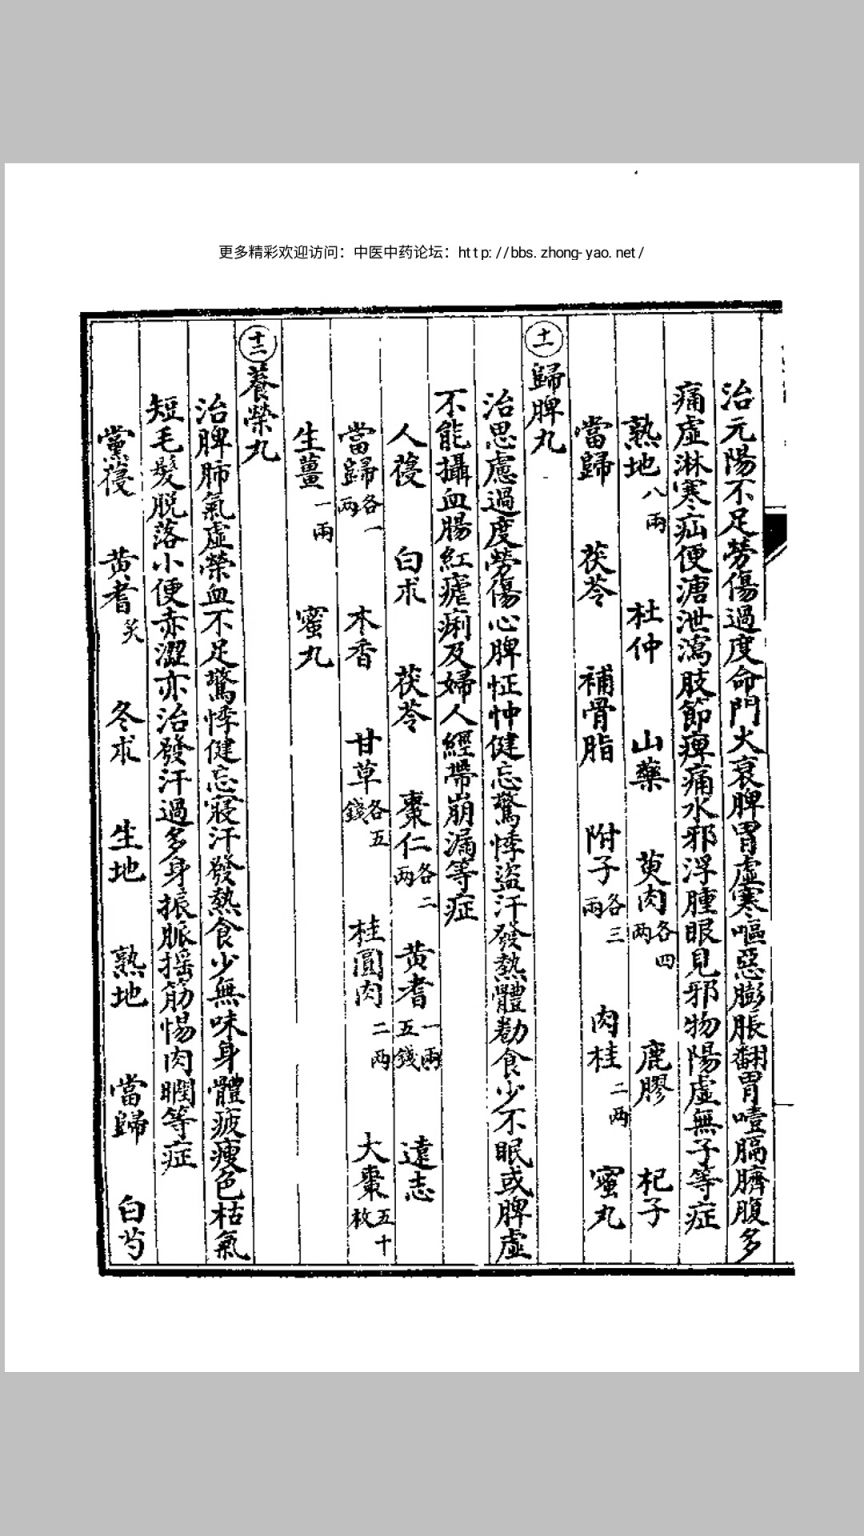 更多精彩欢迎访问：中医中药论坛：http://bbs.zhong-yao.net/
治元陽不足勞傷過度命門火衰脾胃虛寒嘔惡膨脹翻胃噎膈臍腹多
痛虛淋寒疝便溏泄瀉肢節痺痛水邪浮腫眼見邪物陽虛無子等症
熟地八兩 杜仲 山藥 萸肉各四兩 鹿膠 杞子
當歸 茯苓 補骨脂 附子各三兩 肉桂二两 蜜丸
十一 歸脾丸
治思慮過度勞傷心脾怔忡健忘驚悸盜汗發熱體勌食少不眠或脾虛
不能攝血腸紅瘧痢及婦人經帶崩漏等症
人葠 白朮 茯苓 棗仁各二两 黄耆一兩五錢 遠志
當歸各一两 木香 甘草各五錢 桂圓肉二两 大棗五十枚
生薑一兩 蜜丸
十二 養榮丸
治脾肺氣虛榮血不足驚悸健忘寢汗發熱食少無味身體疲瘦色枯氣
短毛髮脫落小便赤澀亦治發汗過多身振脈搖筋惕肉瞤等症
黨葠 黄耆炙 冬朮 生地 熟地 當歸 白芍